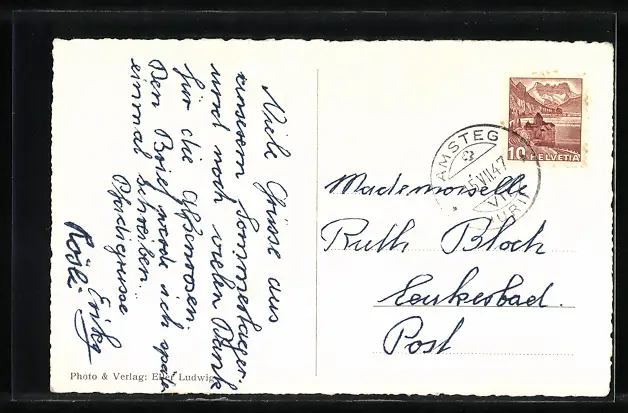 Viele Grüsse aus
unserem Sommerlager.
und noch vielen Dank
für die Alpenrosen.
Den Brief werde ich spät
einmal schreiben.
Pfadigrüsse
Erika
Rösli.
Photo & Verlag: Ludwig
AMSTEG
VII.47
URI
10 HELVETIA
Mademoiselle
Ruth Bloch
Leukerbad.
Post